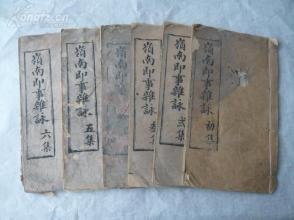 嶺南即事雜詠 初集
嶺南即事雜詠 弍集
嶺南即事雜詠
嶺南即事
嶺南即事雜詠 五集
嶺南即事雜詠 六集